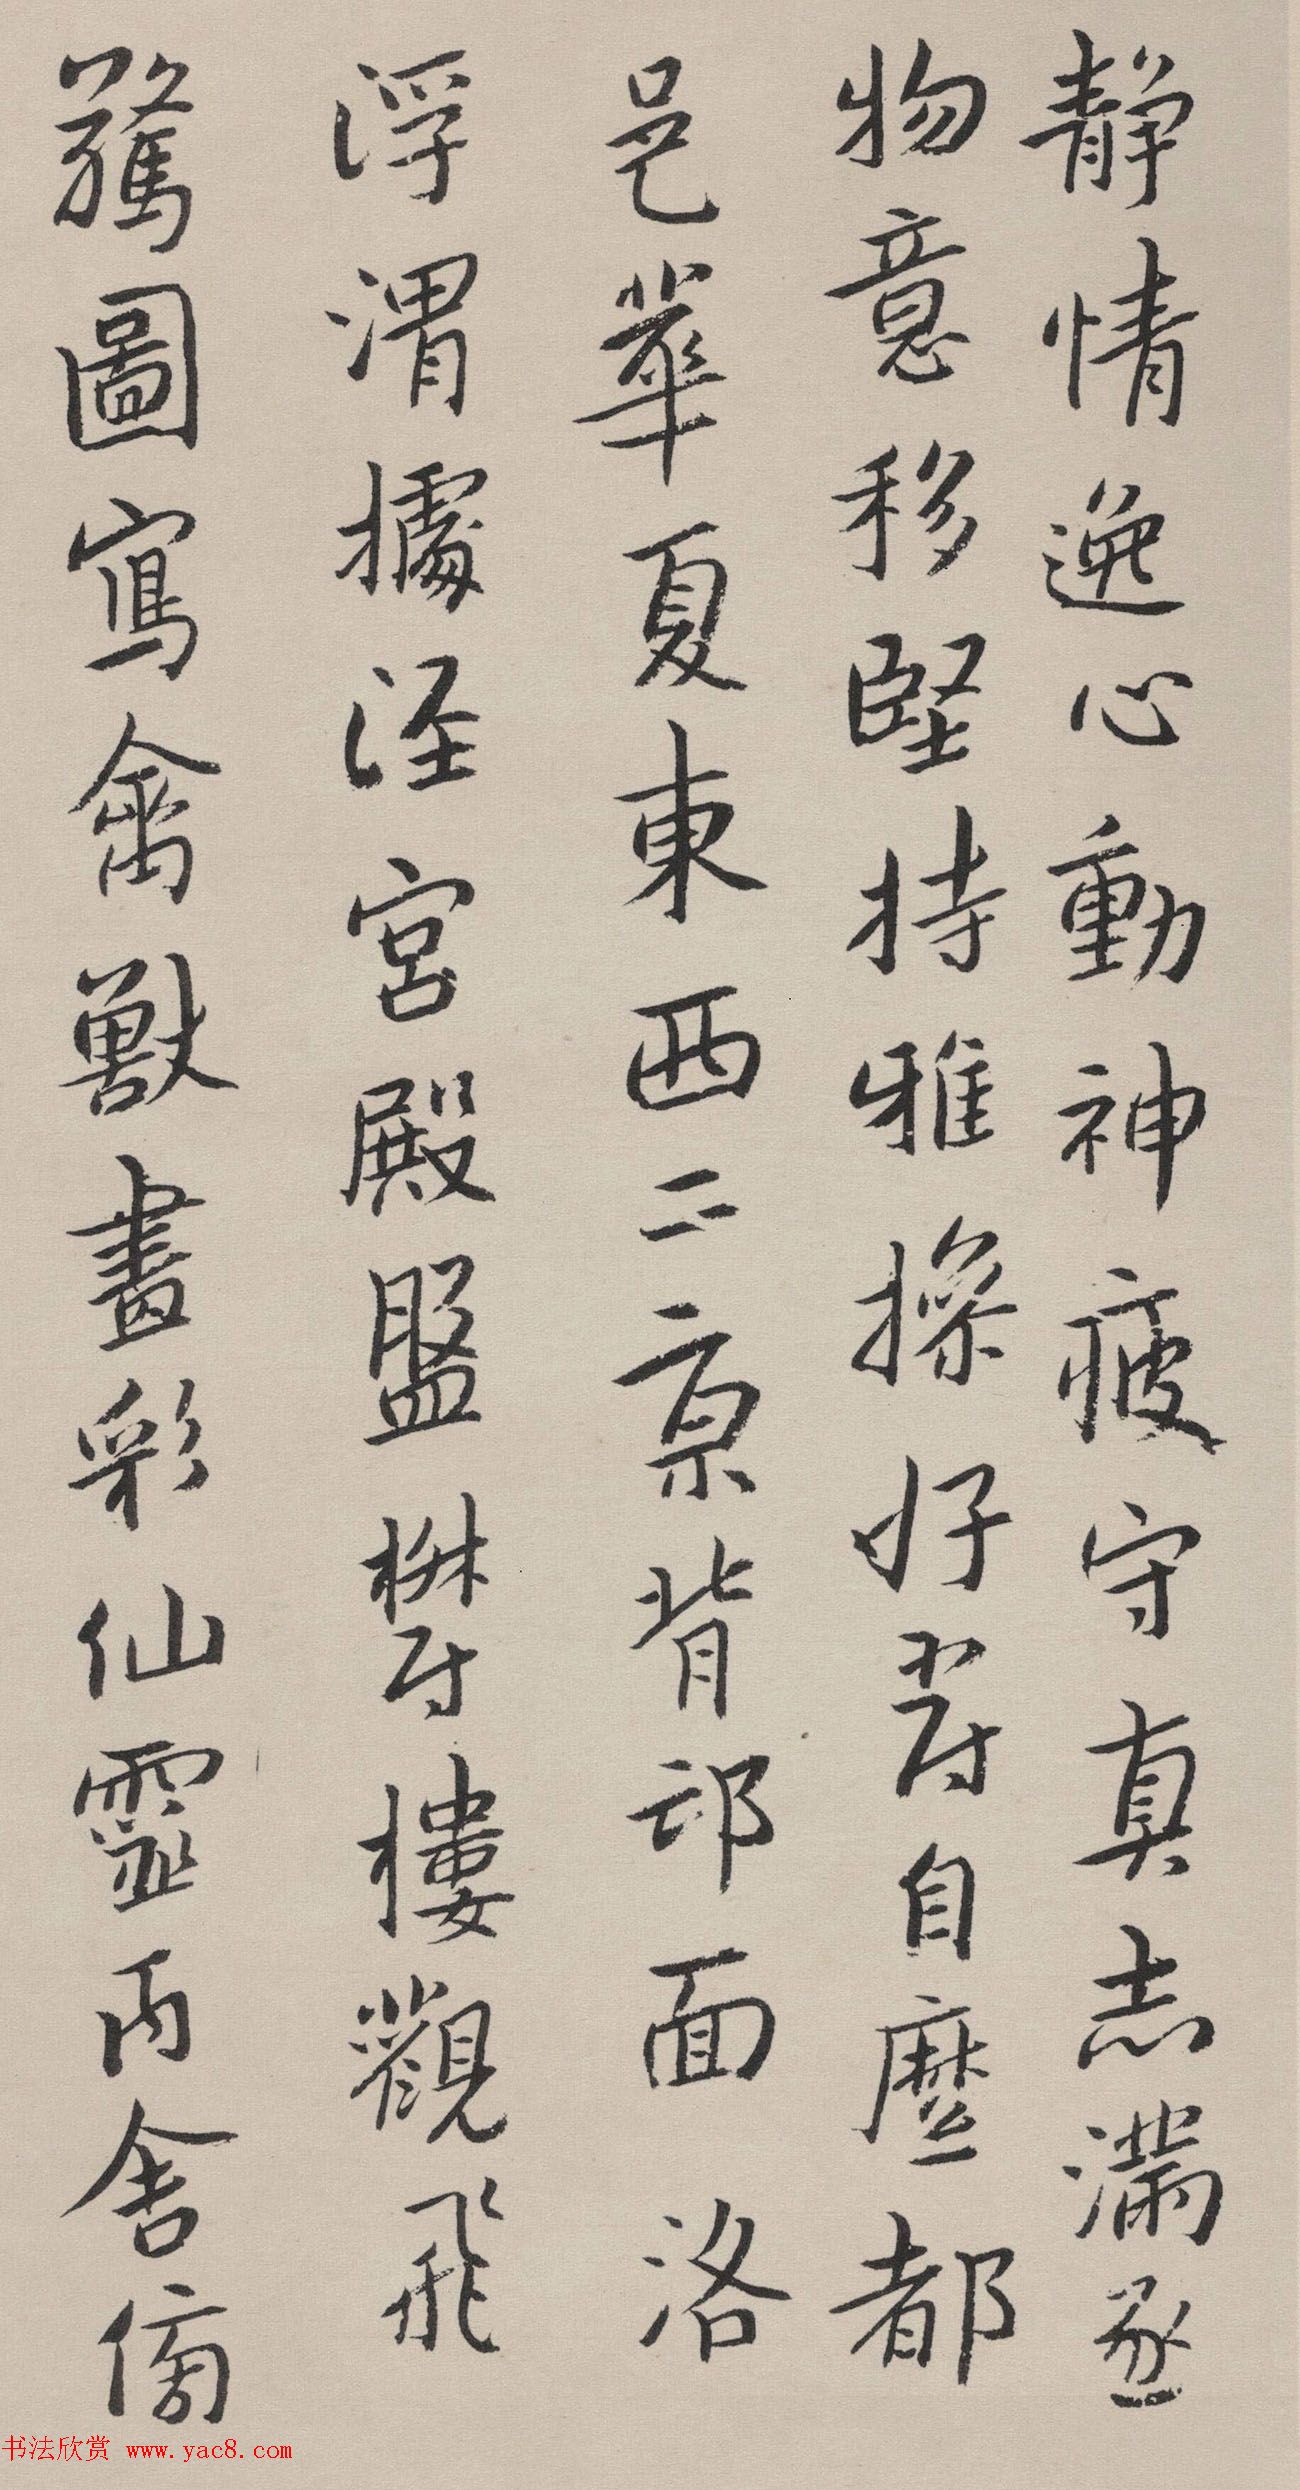 靜情逸心動神疲守真志滿逐
物意移堅持雅操好爵自縻都
邑華夏東西二京背邙面洛
浮渭據涇宮殿盤鬱樓觀飛
驚圖寫禽獸畫彩仙靈丙舍傍
书法欣赏 www.yac8.com